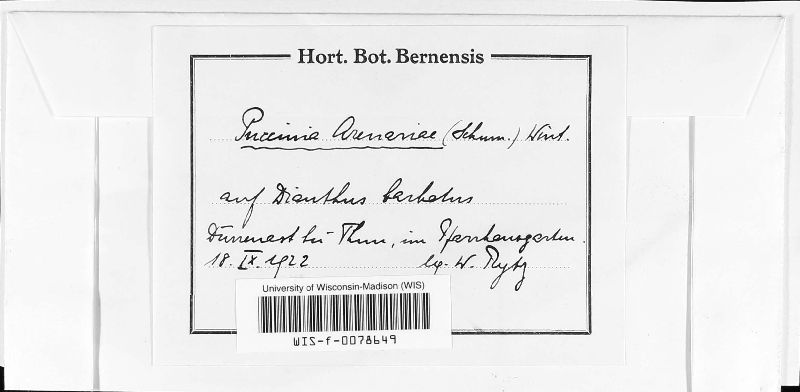 Hort. Bot. Bernensis
Puccinia Arenariae (Schum.) Wint.
auf Dianthus barbatus
Dürrenast bei Thun, im Pfarrhausgarten.
18. IX. 1922 leg. W. Rytz
University of Wisconsin-Madison (WIS)
WIS-f-0078649